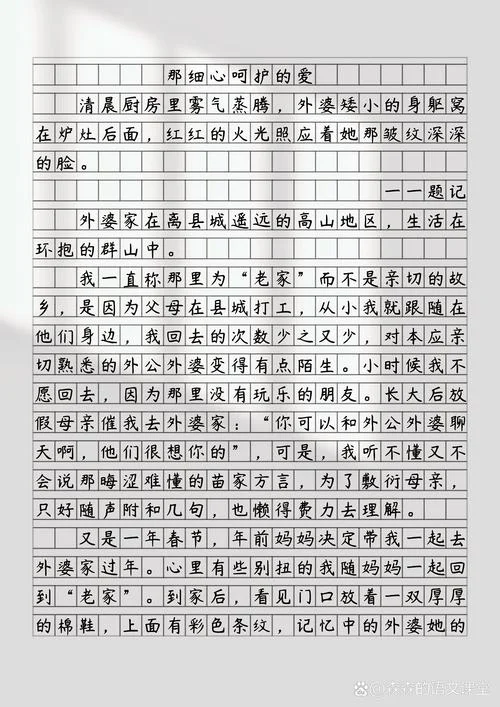 那细心呵护的爱
清晨厨房里雾气蒸腾，外婆矮小的身躯窝
在炉灶后面，红红的火光照应着她那皱纹深深
的脸。
——题记
外婆家在离县城遥远的高山地区，生活在
环抱的群山中。
我一直称那里为“老家”而不是亲切的故
乡，是因为父母在县城打工，从小我就跟随在
他们身边，我回去的次数少之又少，对本应亲
切熟悉的外公外婆变得有点陌生。小时候我不
愿回去，因为那里没有玩乐的朋友。长大后放
假母亲催我去外婆家：“你可以和外公外婆聊
天啊，他们很想你的”，可是，我听不懂又不
会说那晦涩难懂的苗家方言，为了敷衍母亲，
只好随声附和几句，也懒得费力去理解。
又是一年春节，年前妈妈决定带我一起去
外婆家过年。心里有些别扭的我随妈妈一起回
到“老家”。到家后，看见门口放着一双厚厚
的棉鞋，上面有彩色条纹，记忆中的外婆她的
森森的语文课堂